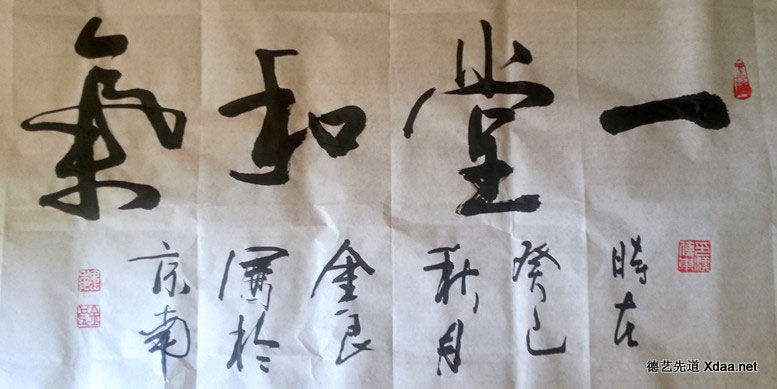 一堂和氣
時在
癸巳
秋月
金良
寫於
京南
德艺先道 Xdaa.net